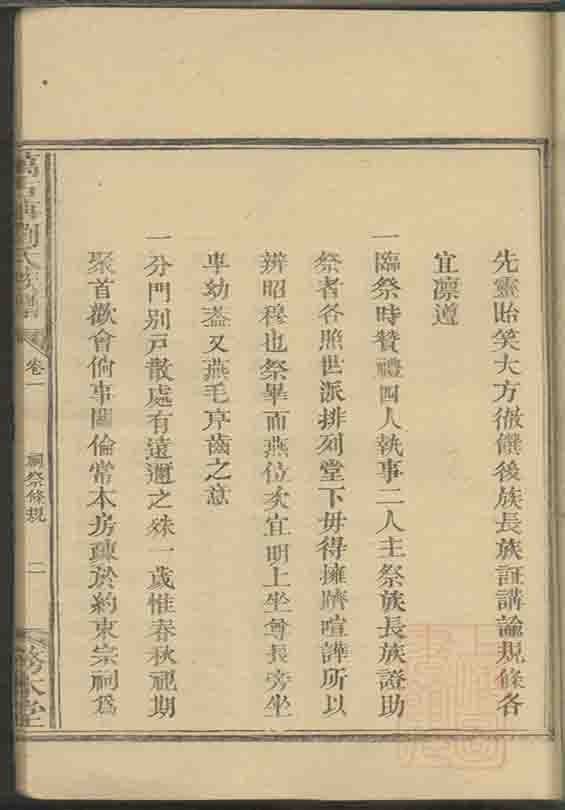 先靈貽笑大方徹饌後族長族証講論規條各
宜凛遵
一臨祭時贊禮四人執事二人主祭族長族證助
祭者各照世派排列堂下毋得擁躋喧譁所以
辨昭穆也祭畢而燕位次宜明上坐尊長旁坐
卑幼葢又燕毛序齒之意
一分門別戸散處有遠邇之殊一歲惟春秋祀期
聚首歡會倘事關倫常本房疎於約束宗祠爲
劉氏族譜 卷一 祠祭條規 二 務本堂